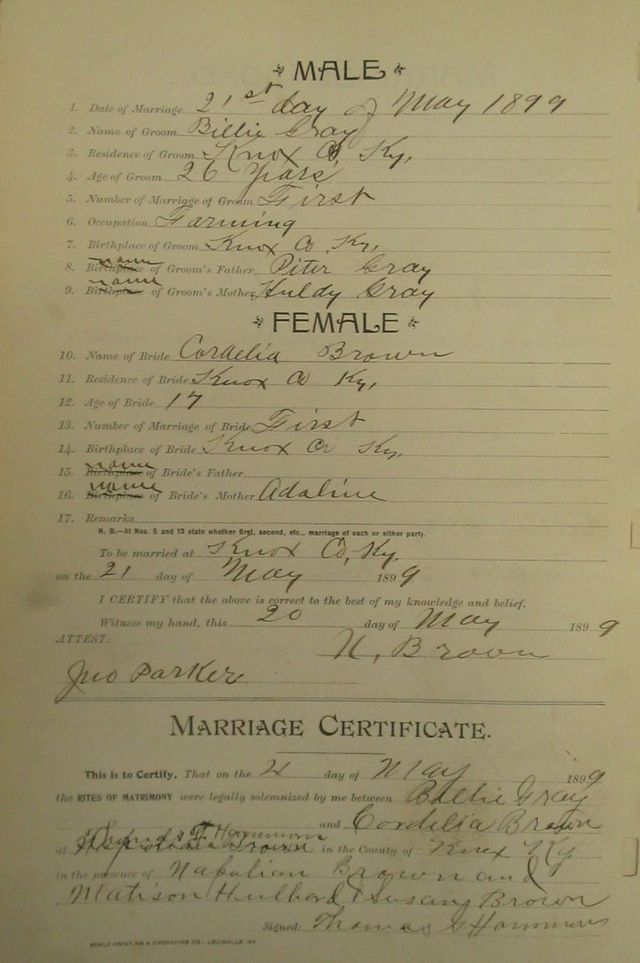 MALE
1. Date of Marriage 21st day of May 1899
2. Name of Groom Billie Gray
3. Residence of Groom Knox Co Ky,
4. Age of Groom 26 Years
5. Number of Marriage of Groom First
6. Occupation Farming
7. Birthplace of Groom Knox Co Ky,
8. Birthplace name of Groom's Father Piter Gray
9. Birthplace name of Groom's Mother Huldy Gray
FEMALE
10. Name of Bride Cordelia Brown
11. Residence of Bride Knox Co Ky,
12. Age of Bride 17
13. Number of Marriage of Bride First
14. Birthplace of Bride Knox Co Ky,
15. Birthplace name of Bride's Father
16. Birthplace name of Bride's Mother Adaline
17. Remarks
N. B.—At Nos. 5 and 13 state whether first, second, etc., marriage of each or either party.
To be married at Knox Co, Ky.
on the 21 day of May 1899
I CERTIFY that the above is correct to the best of my knowledge and belief.
Witness my hand, this 20 day of May 1899
ATTEST: N, Brown
Jno Parker
MARRIAGE CERTIFICATE.
This is to Certify, That on the day of May 1899
the RITES OF MATRIMONY were legally solemnized by me between Billie Gray
and Cordelia Brown
at in the County of Knox Ky
in the presence of Nabalian Brown and
Matison Hubbard & Susany Brown
Signed: Thomas G Hammons